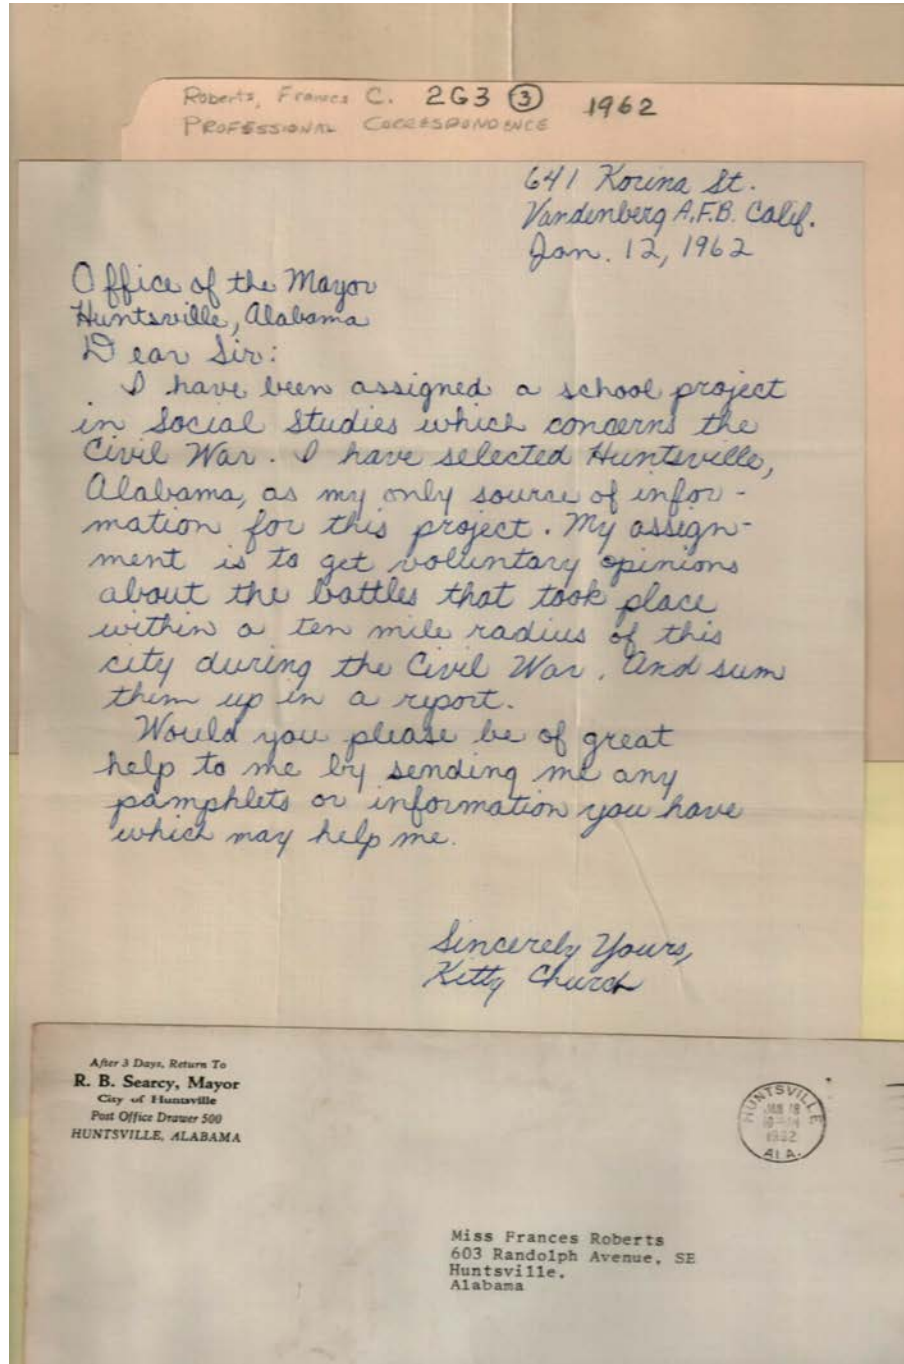 Roberts, Frances C. 2G3 ③ 1962
PROFESSIONAL CORRESPONDENCE
641 Korina St.
Vandenberg A.F.B. Calif.
Jan. 12, 1962
Office of the Mayor
Huntsville, Alabama
Dear Sir:
I have been assigned a school project
in Social Studies which concerns the
Civil War. I have selected Huntsville,
Alabama, as my only source of infor-
mation for this project. My assign-
ment is to get voluntary opinions
about the battles that took place
within a ten mile radius of this
city during the Civil War. And sum
them up in a report.
Would you please be of great
help to me by sending me any
pamphlets or information you have
which may help me.
Sincerely Yours,
Kitty Church
After 3 Days, Return To
R. B. Searcy, Mayor
City of Huntsville
Post Office Drawer 500
HUNTSVILLE, ALABAMA
HUNTSVILLE
JAN 18
1962
ALA.
Miss Frances Roberts
603 Randolph Avenue, SE
Huntsville,
Alabama